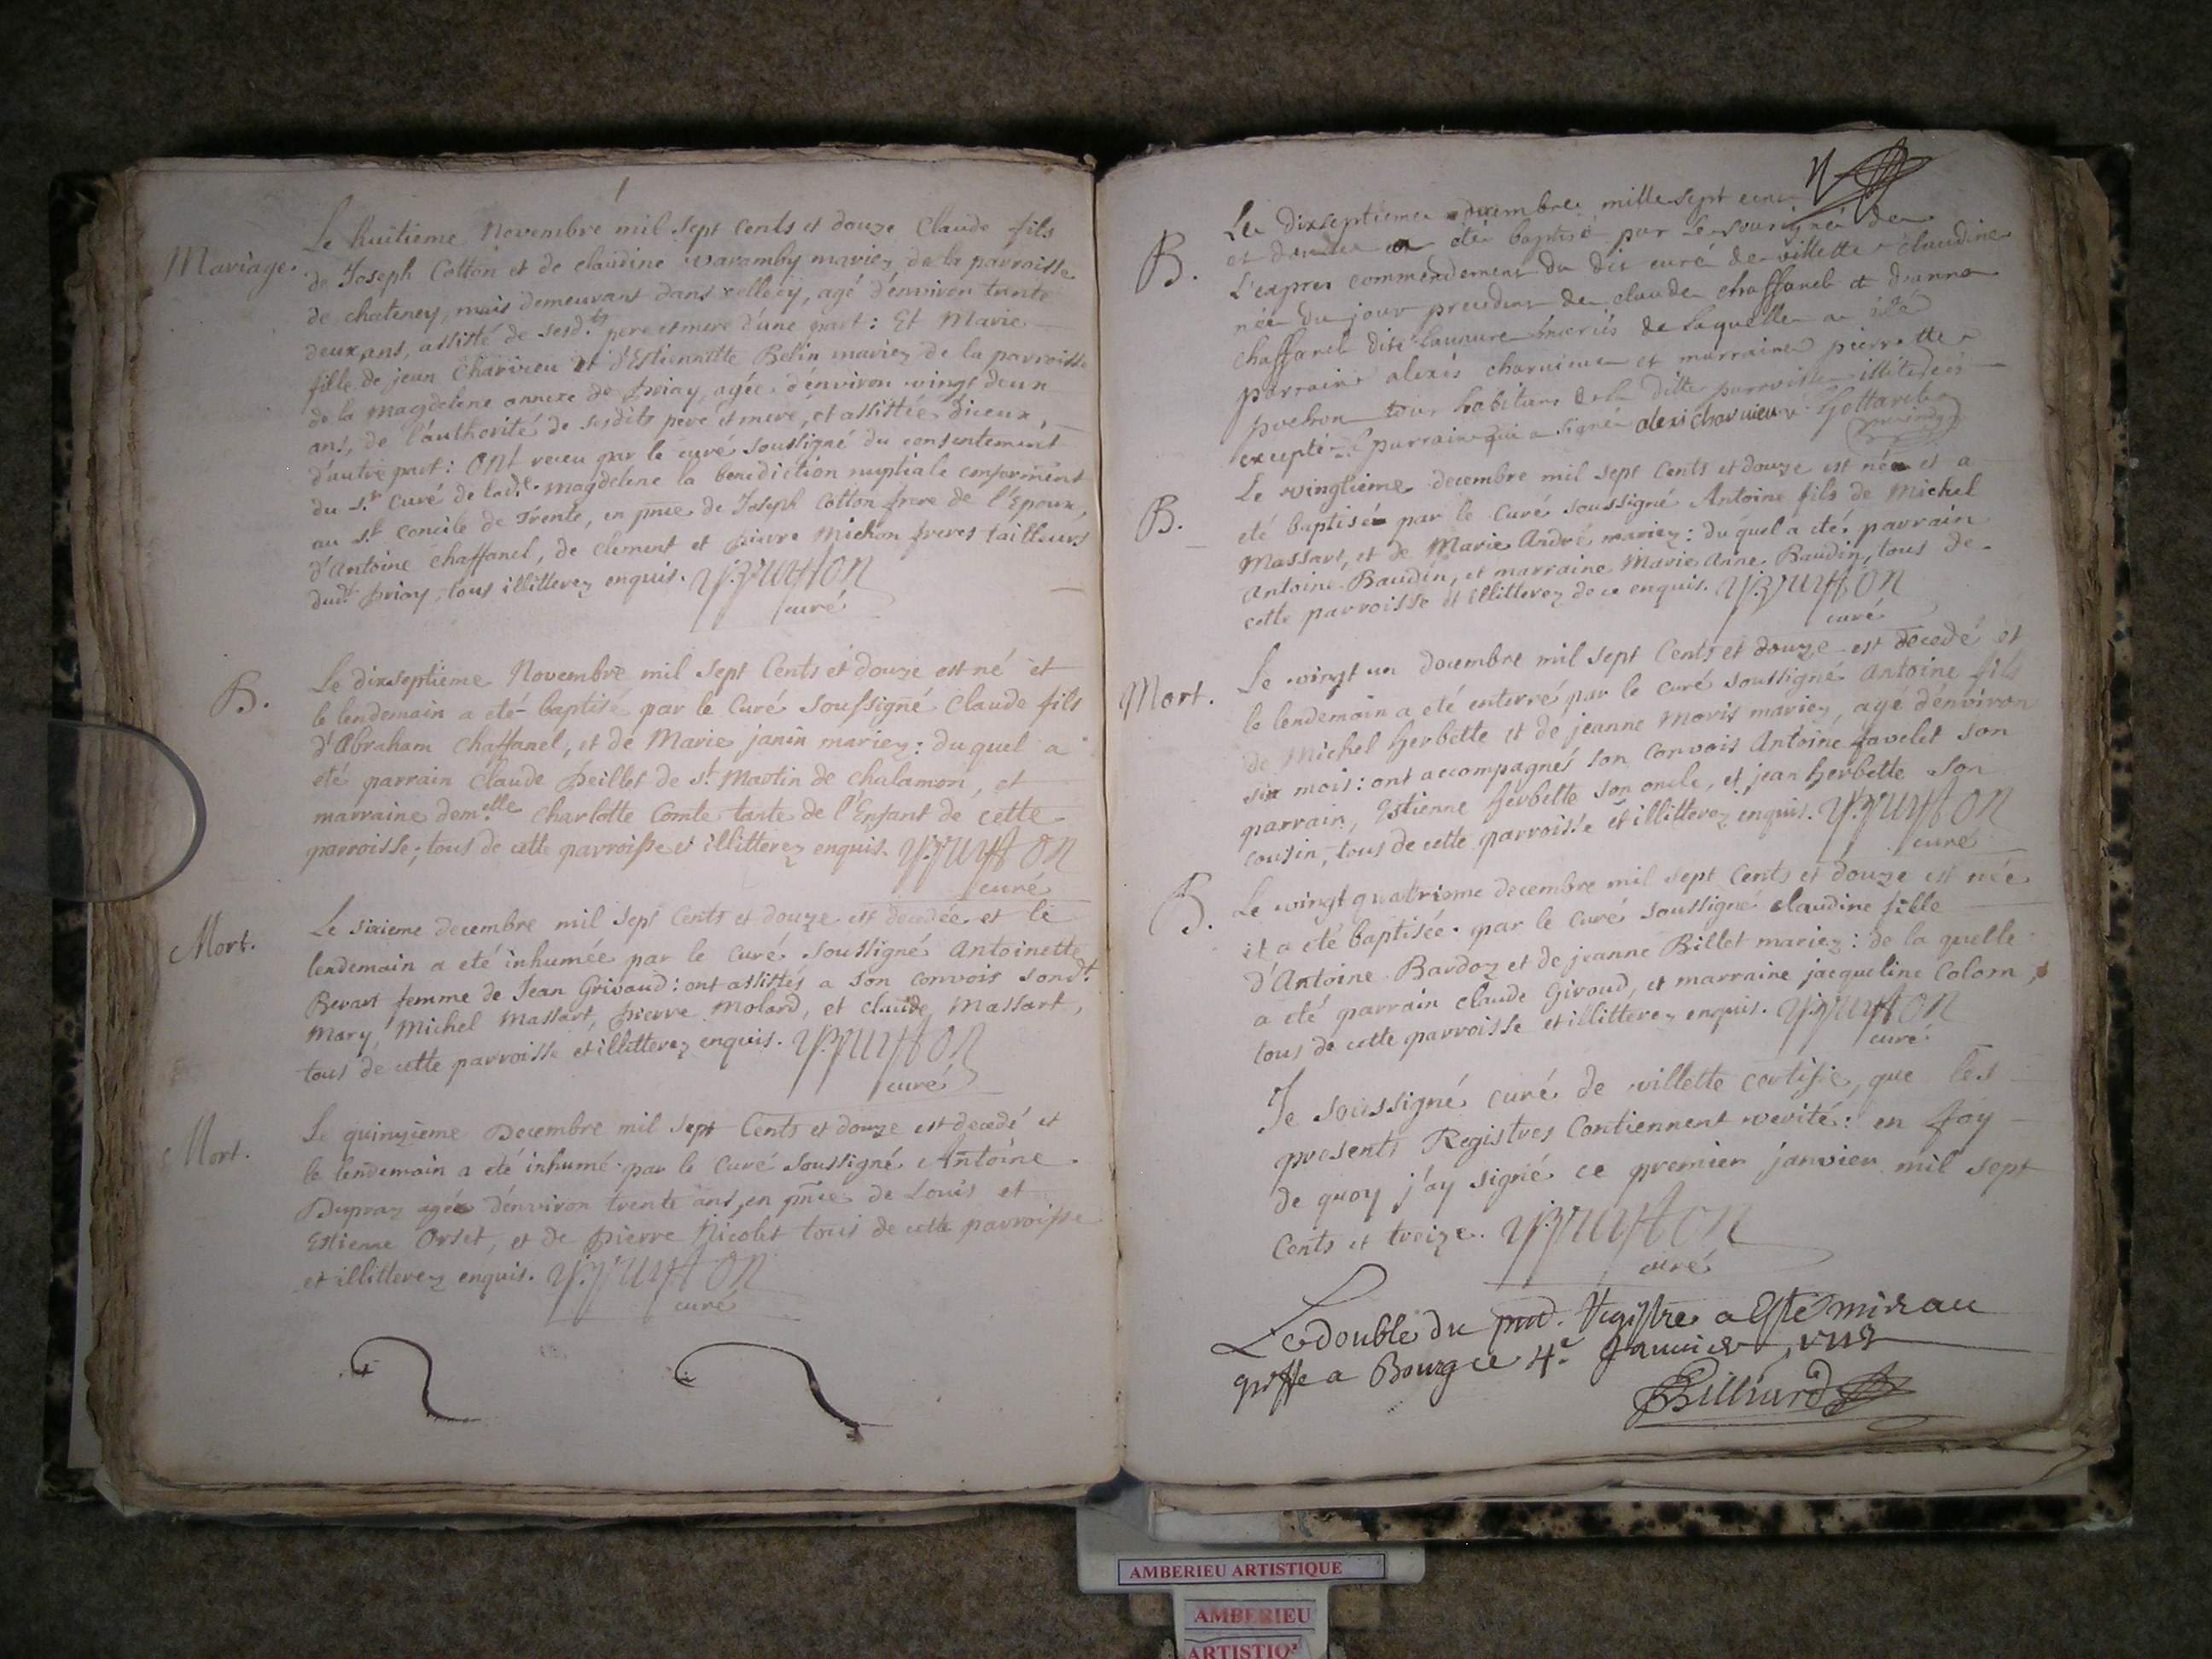 Mariage.
Le huitieme Novembre mil sept cents et douze Claude fils
de Joseph Cotton et de claudine varamby mariez de la parroisse
de chateney, mais demeurant dans, agé d'environ trente
deux ans, assisté de sesd.ts pere et mere d'une part: Et Marie
fille de jean Charvieu et d'Estiennette Belin mariez de la parroisse
de la magdelene annexe de priay, agée d'environ vingt deux
ans, de l'authorité de sesdits pere et mere, et assistée d'iceux,
d'autre part: Ont receu par le curé soussigné du consentement
du S.r Curé de lad.e Magdelene la benediction nuptiale conformément
au S.t Concile de Trente, en pnce de Joseph Cotton frere de l'Epoux,
d'Antoine Chaffanel, de Clement et pierre Michon freres tailleurs
dud.t priay, tous illitterez enquis.
curé
B.
Le dixseptieme Novembre mil sept Cents et douze est né et
le lendemain a eté baptisé par le Curé soussigné Claude fils
d'Abraham Chaffanel, et de Marie janin mariez: duquel a
eté parrain Claude peillet de S.t Martin de Chalamon, et
marraine dem.elle Charlotte Comte tante de l'Enfant de cette
parroisse; tous de cette parroisse et illitterez enquis.
curé
Mort.
Le sixieme decembre mil sept Cents et douze est decedée et le
lendemain a eté inhumée par le Curé soussigné Antoinette
Bevart femme de Jean Grivaud: ont assistés a son convois sond.t
Mary, Michel Massart, pierre Molard, et claude Massart,
tous de cette parroisse et illitterez enquis.
curé
Mort.
Le quinzieme Decembre mil sept Cents et douze est decedé et
le lendemain a eté inhumé par le Curé soussigné Antoine
Dupraz agé d'environ trente ans, en pnce de Louis et
Estienne Orset, et de pierre Nicolet tous de cette parroisse
et illitterez enquis.
curé
B.
Le dixseptieme decembre mille sept cent
et douze a eté baptisé par le sousigné de
l'expres commendement du dit curé de villette claudine
née du jour precedent de claude chaffanel et d'anne
chaffanel dite mariés de laquelle a eté
parrain alexis charvieu et marraine pierrette
pochon tous habitans de la ditte parroisse illiterés
excepté le parrain qui a signé alexi charvieu
B.
Le vingtieme decembre mil sept Cents et douze est né et a
eté baptisé par le Curé soussigné Antoine fils de Michel
Massart, et de Marie André mariez: duquel a eté parrain
Antoine Baudin, et marraine Marie Anne Baudin, tous de
cette parroisse et illitterez de ce enquis.
curé
Mort.
Le vingt un decembre mil sept Cents et douze est decedé et
le lendemain a eté enterré par le Curé soussigné Antoine fils
de Michel herbette et de jeanne Moris mariez, agé d'environ
six mois: ont accompagnés son convois Antoine favelet son
parrain, Estienne herbette son oncle, et jean herbette son
cousin, tous de cette parroisse et illitterez enquis.
curé
B.
Le vingt quatrieme decembre mil sept Cents et douze est née
et a eté baptisée par le Curé soussigné claudine fille
d'Antoine Bardoz et de jeanne Billet mariez: de la quelle
a eté parrain claude Giroud, et marraine jacqueline Colom,
tous de cette parroisse et illitterez enquis.
curé
Je soussigné curé de villette certifie, que les
presents Registres Contiennent verité: en foy
de quoy j'ay signé ce premier janvier mil sept
Cents et treize.
curé
Le double du pnt. Registre a esté mis au
greffe a Bourg ce 4.e Janvier 1713
Billiard
AMBERIEU ARTISTIQUE
AMBERIEU
ARTISTIQ